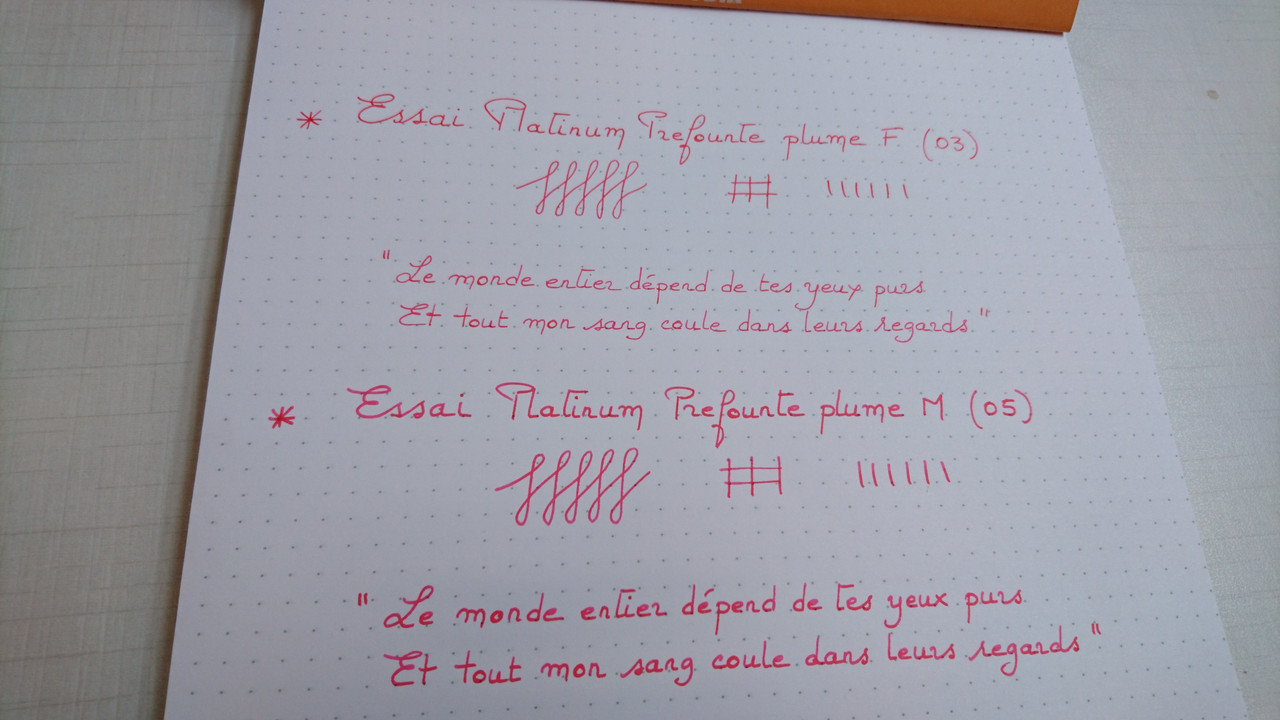 * Essai Platinum Prefounte plume F (03)
"Le monde entier dépend de tes yeux purs
Et tout mon sang coule dans leurs regards."
* Essai Platinum Prefounte plume M (05)
"Le monde entier dépend de tes yeux purs
Et tout mon sang coule dans leurs regards"